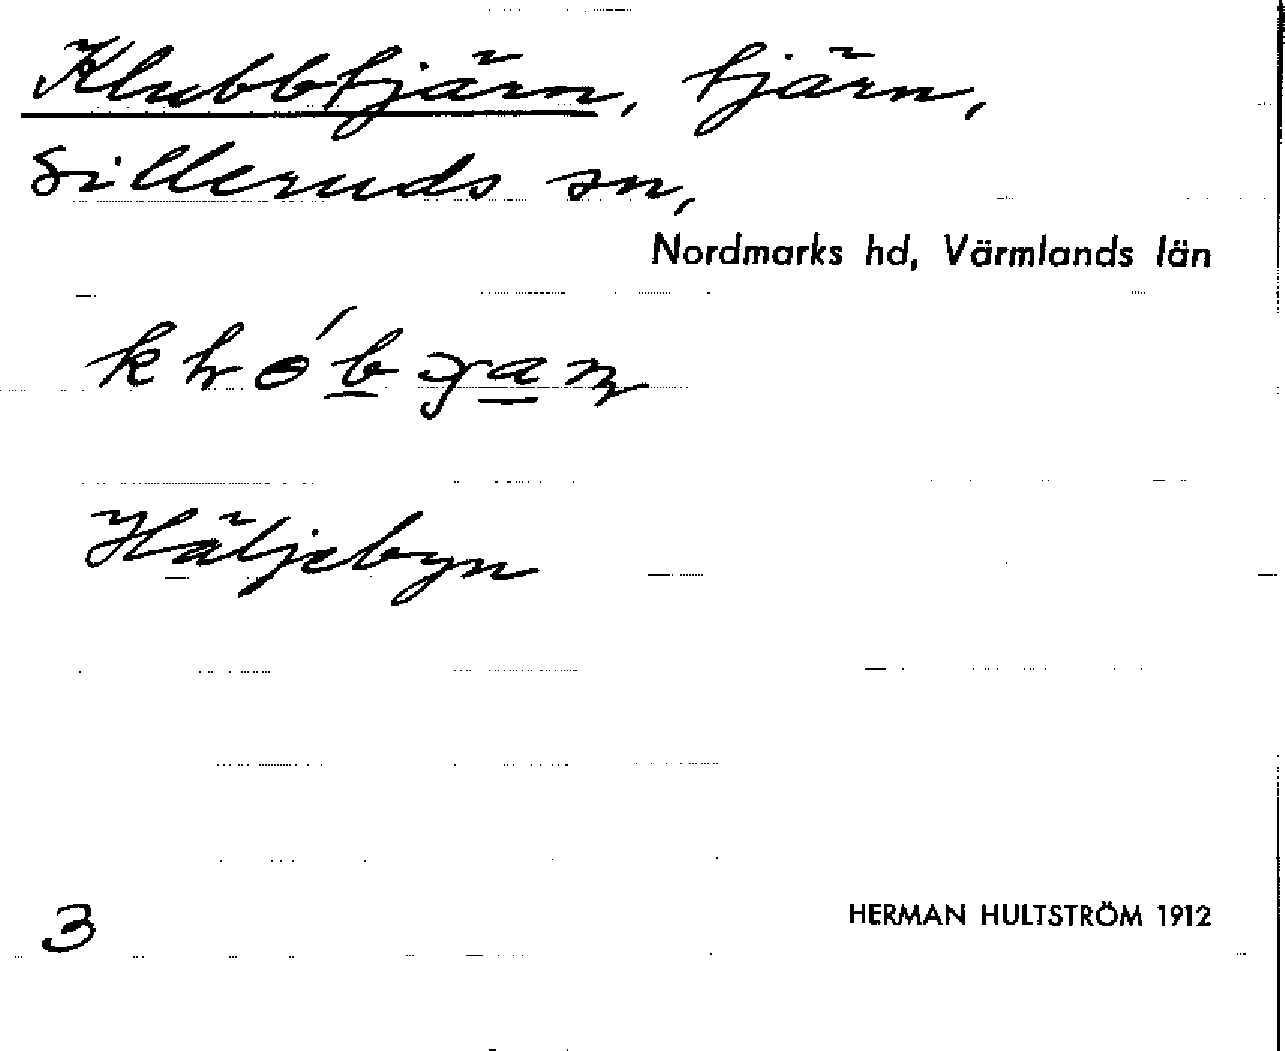 Klubbtjärn, tjärn,
Silleruds sn,
Nordmarks hd, Värmlands län
Häljebyn
3
HERMAN HULTSTRÖM 1912